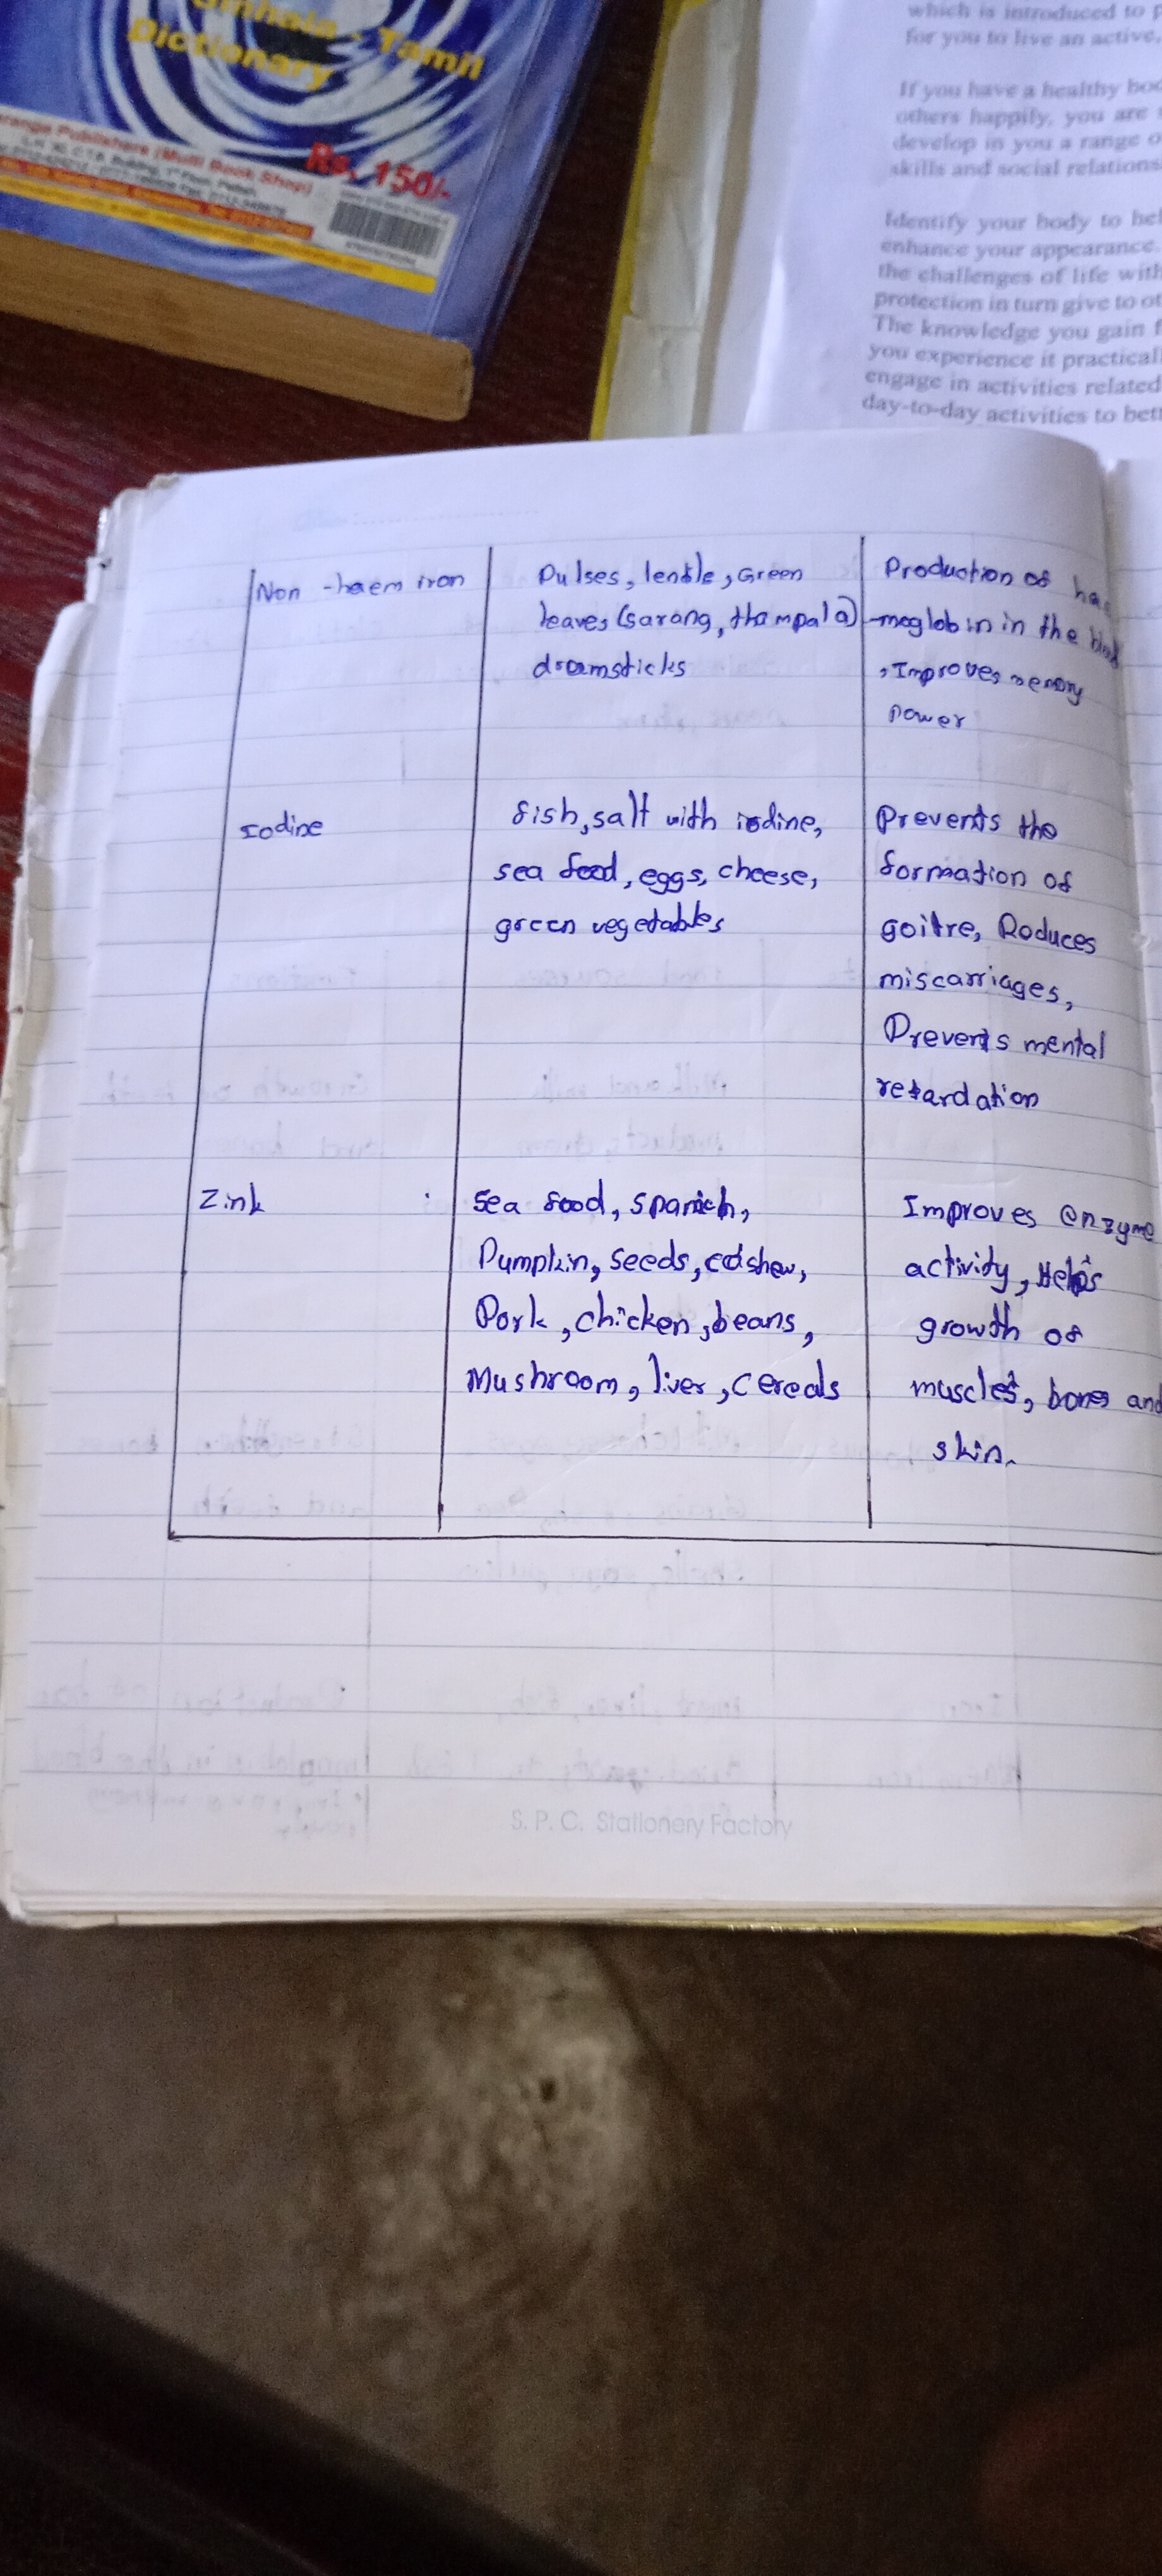 Sinhala - Tamil
Dictionary
Publishers (Multi Book Shop)
Rs. 150/-
which is introduced to
for you to live an active,
If you have a healthy
others happify, you are
develop in you a range
skills and social relations
Identify your body to
enhance your appearance.
the challenges of life with
protection in turn give to
The knowledge you gain
you experience it
engage in activities related
day-to-day activities to
Non -haem iron
Pulses, lentle, Green
leaves (sarang, thampala)
dramsticks
Production of hae
-moglobin in the blood
, Improves memory
power
Iodine
fish, salt with iodine,
sea food, eggs, cheese,
green vegetables
Prevents the
formation of
goitre, Roduces
miscarriages,
Prevents mental
retardation
Zink
Sea food, spanich,
Pumpkin, seeds, cashew,
Pork, chicken, beans,
Mushroom, liver, cereals
Improves enzyme
activity, Helps
growth of
muscles, bones and
skin.
S. P. C. Stationery Factory